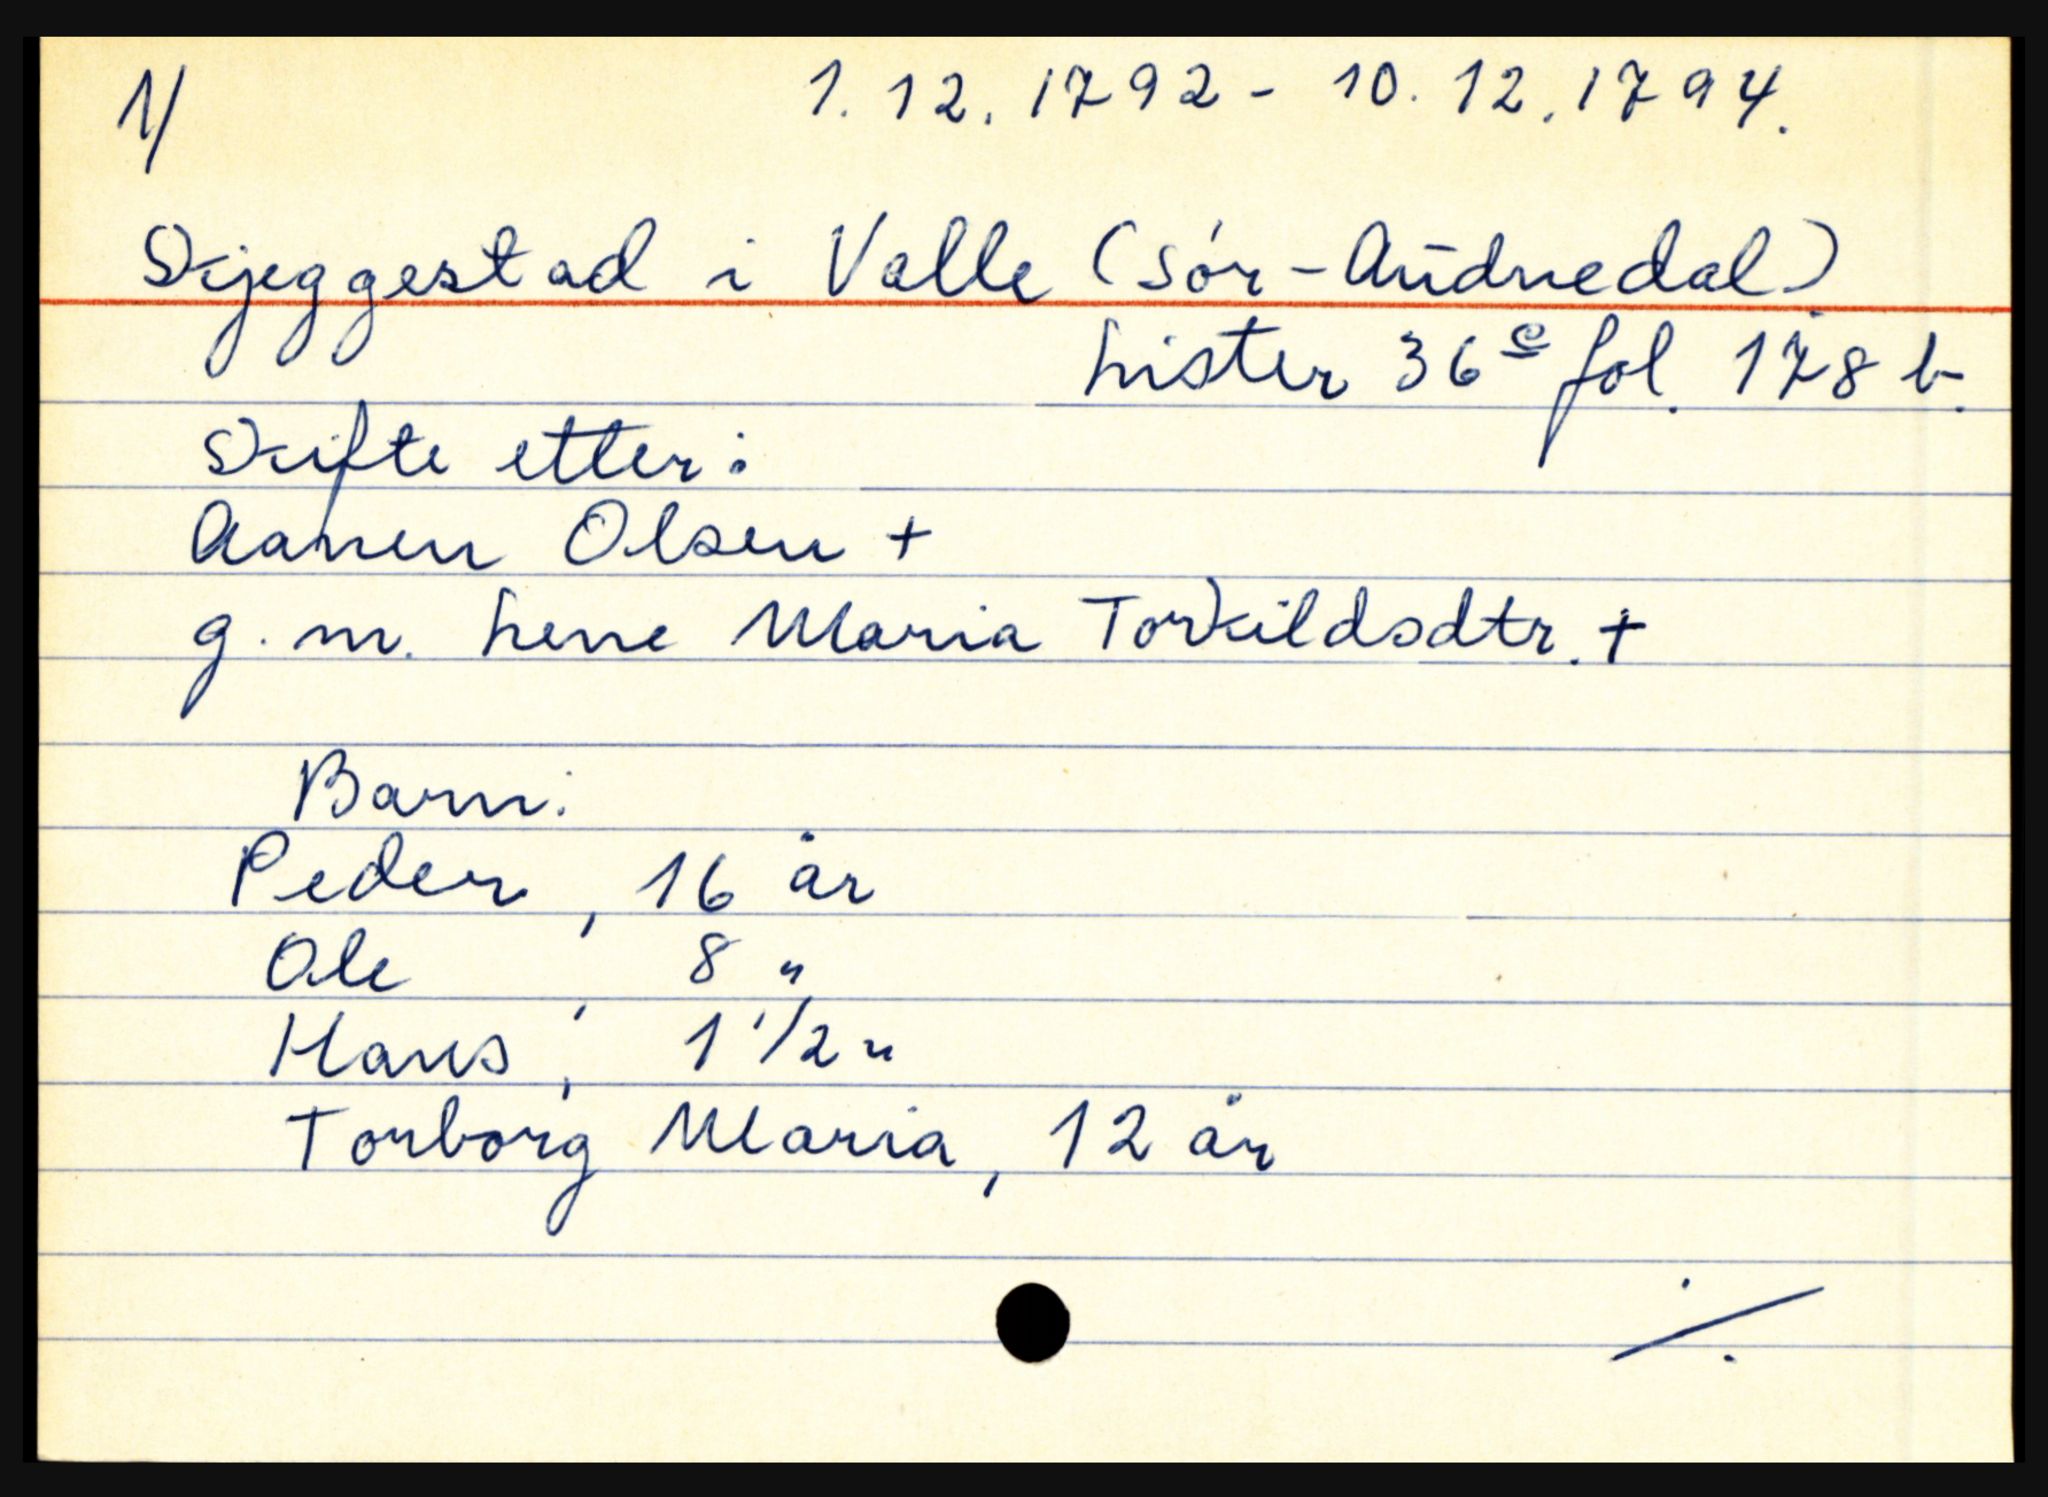 1/ 1.12.1792 - 10.12.1794.
Skjeggestad i Valle (Sør-Audnedal)
Lister 36c fol. 178 b.
Skifte etter:
Aanen Olsen +
g. m. Lene Maria Torkildsdtr. +
Barn:
Peder, 16 år
Ole, 8 "
Hans, 1 1/2 "
Torborg Maria, 12 år
./.